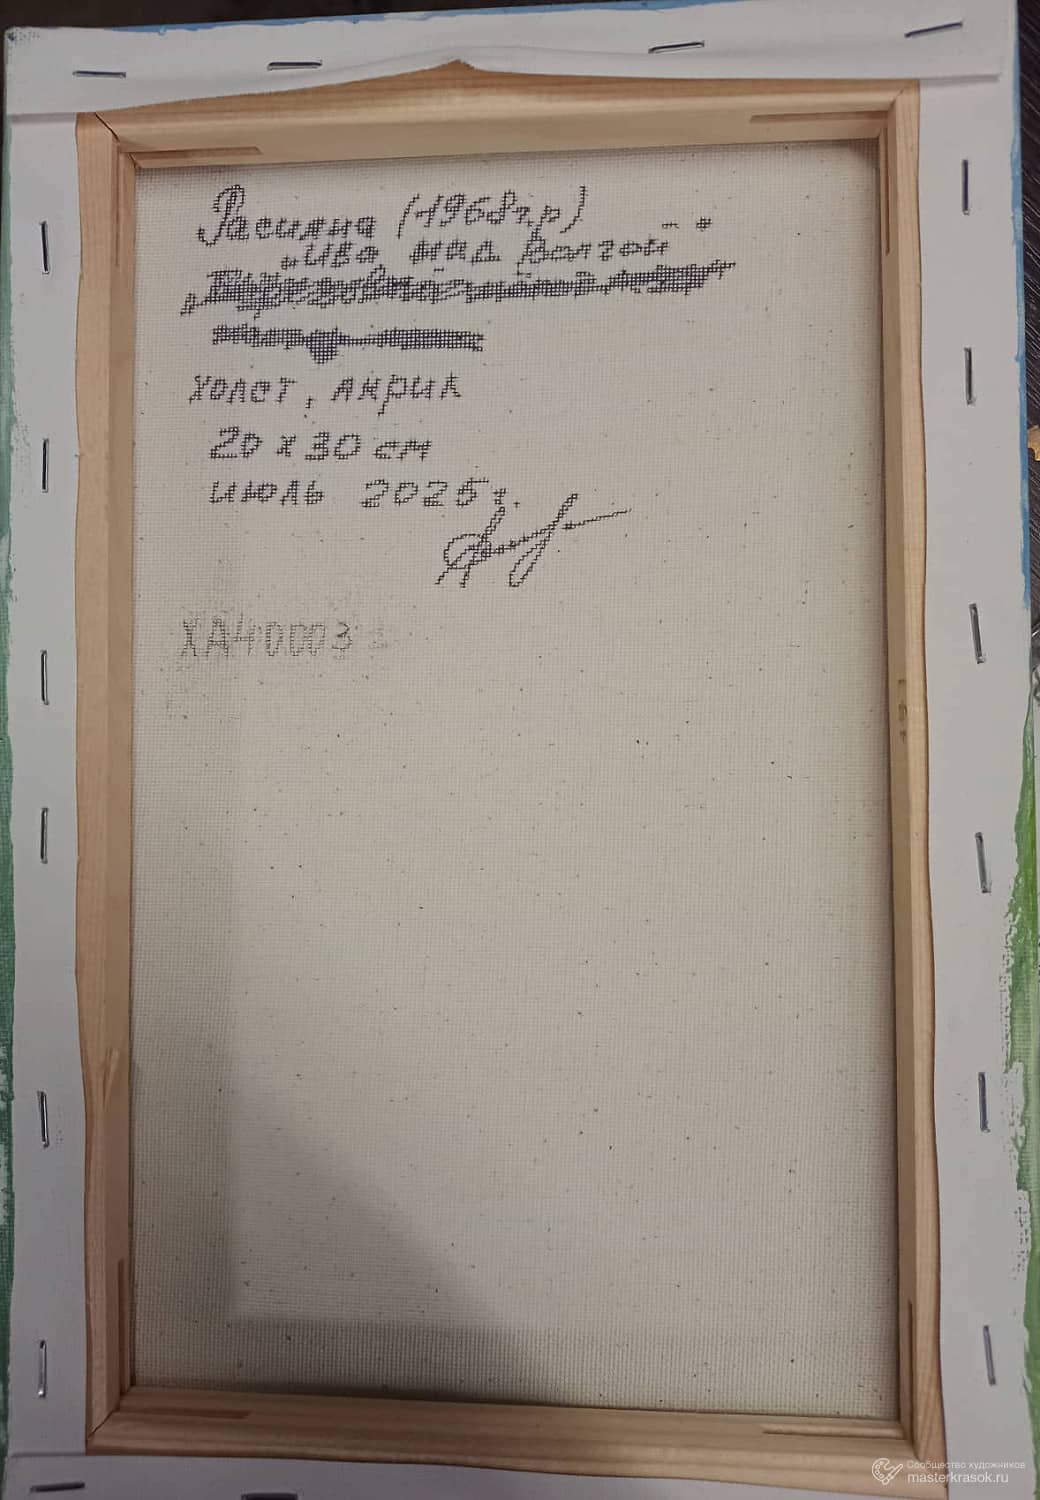 Расияна (1968г.р)
„Ива над Волгой"
Холст, акрил
20 х 30 см
июль 2025г.
ХА40003
Сообщество художников
masterkrasok.ru